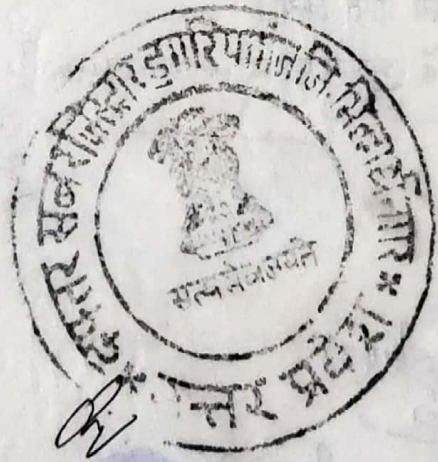 दफ्तर सब रजिस्ट्रार डुमरियागंज जि. सिद्धार्थनगर * उत्तर प्रदेश *
सत्यमेव जयते